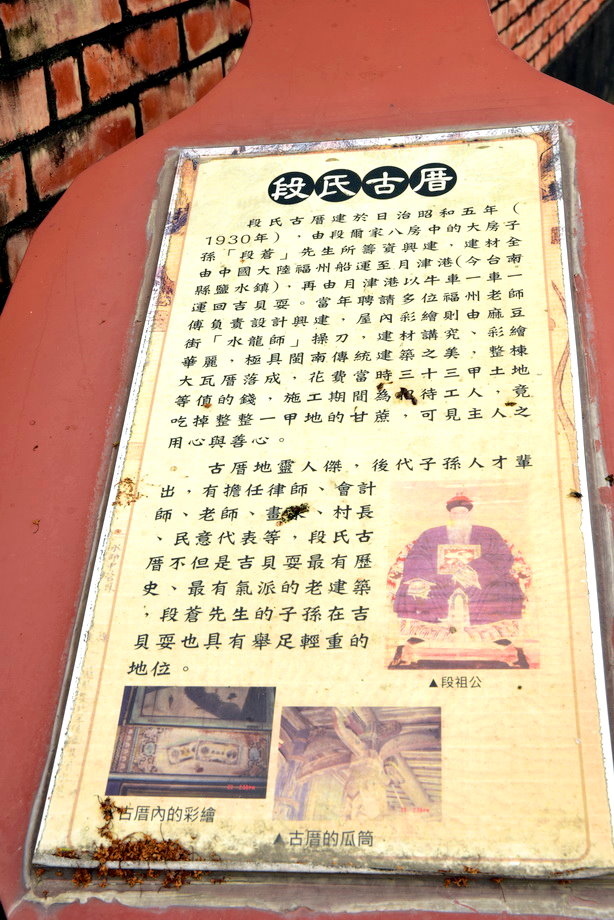 段氏古厝
段氏古厝建於日治昭和五年（
1930年），由段爾家八房中的大房子
孫「段蒼」先生所籌資興建，建材全
由中國大陸福州船運至月津港(今台南
縣鹽水鎮)，再由月津港以牛車一車一
運回吉貝耍。當年聘請多位福州老師
傅負責設計興建，屋內彩繪則由麻豆
街「水龍師」操刀，建材講究、彩繪
華麗，極具閩南傳統建築之美，整棟
大瓦厝落成，花費當時三十三甲土地
等值的錢，施工期間為招待工人，竟
吃掉整整一甲地的甘蔗，可見主人之
用心與善心。
古厝地靈人傑，後代子孫人才輩
出，有擔任律師、會計
師、老師、畫家、村長
、民意代表等，段氏古
厝不但是吉貝耍最有歷
史、最有氣派的老建築
，段蒼先生的子孫在吉
貝耍也具有舉足輕重的
地位。
▲段祖公
▲古厝內的彩繪
▲古厝的瓜筒